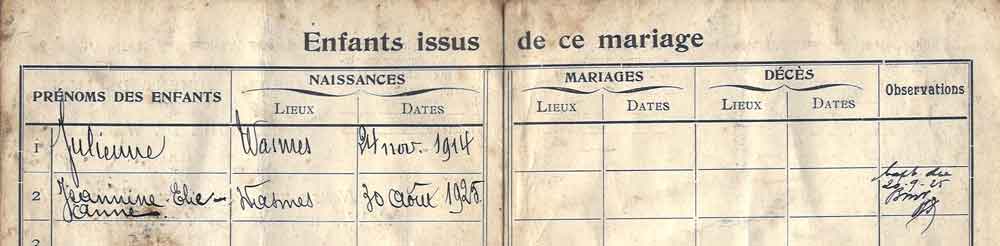 Enfants issus de ce mariage
PRÉNOMS DES ENFANTS
NAISSANCES
LIEUX DATES
MARIAGES
LIEUX DATES
DÉCÈS
LIEUX DATES
Observations
1 Julienne Wasmes 24 nov. 1914
2 Jeannine-Elie- Wasmes 30 août 1925
Jeanne
20-9-25
3